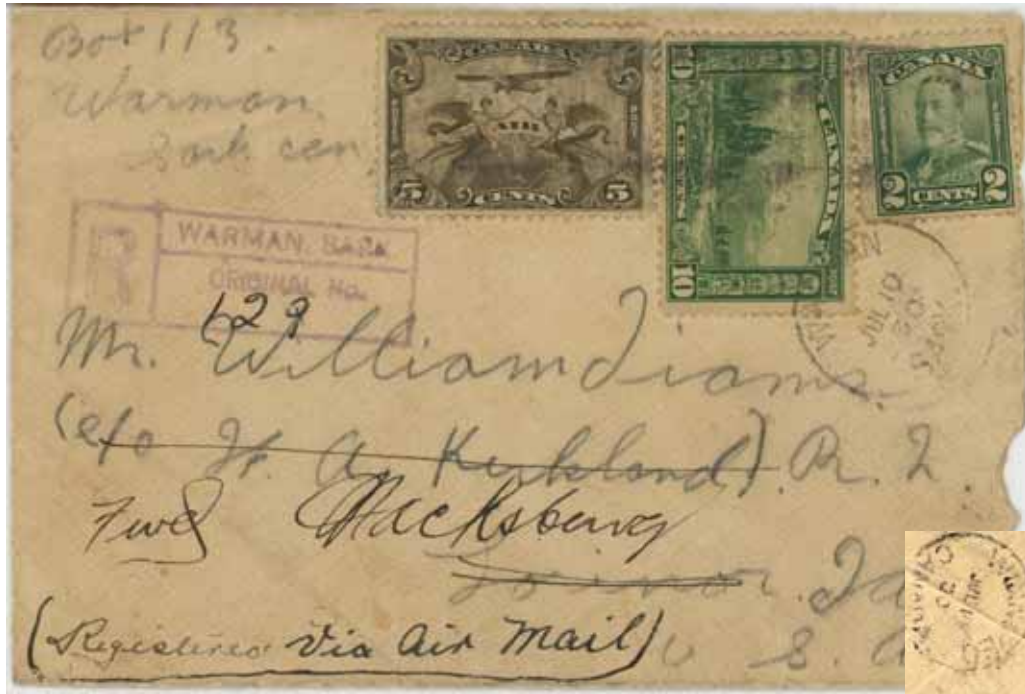 Box 113.
Warman,
Sask can
CANADA
AIR
5 CENTS 5
CANADA
10
10
CANADA
2 CENTS 2
R
WARMAN, SASK.
ORIGINAL No.
629
JUL 10
30
Mr. William
(c/o H. A. Kirkland) R. 2
Fwd Macksburg
U. S. A
(Registered Via Air Mail)
CANADA
30